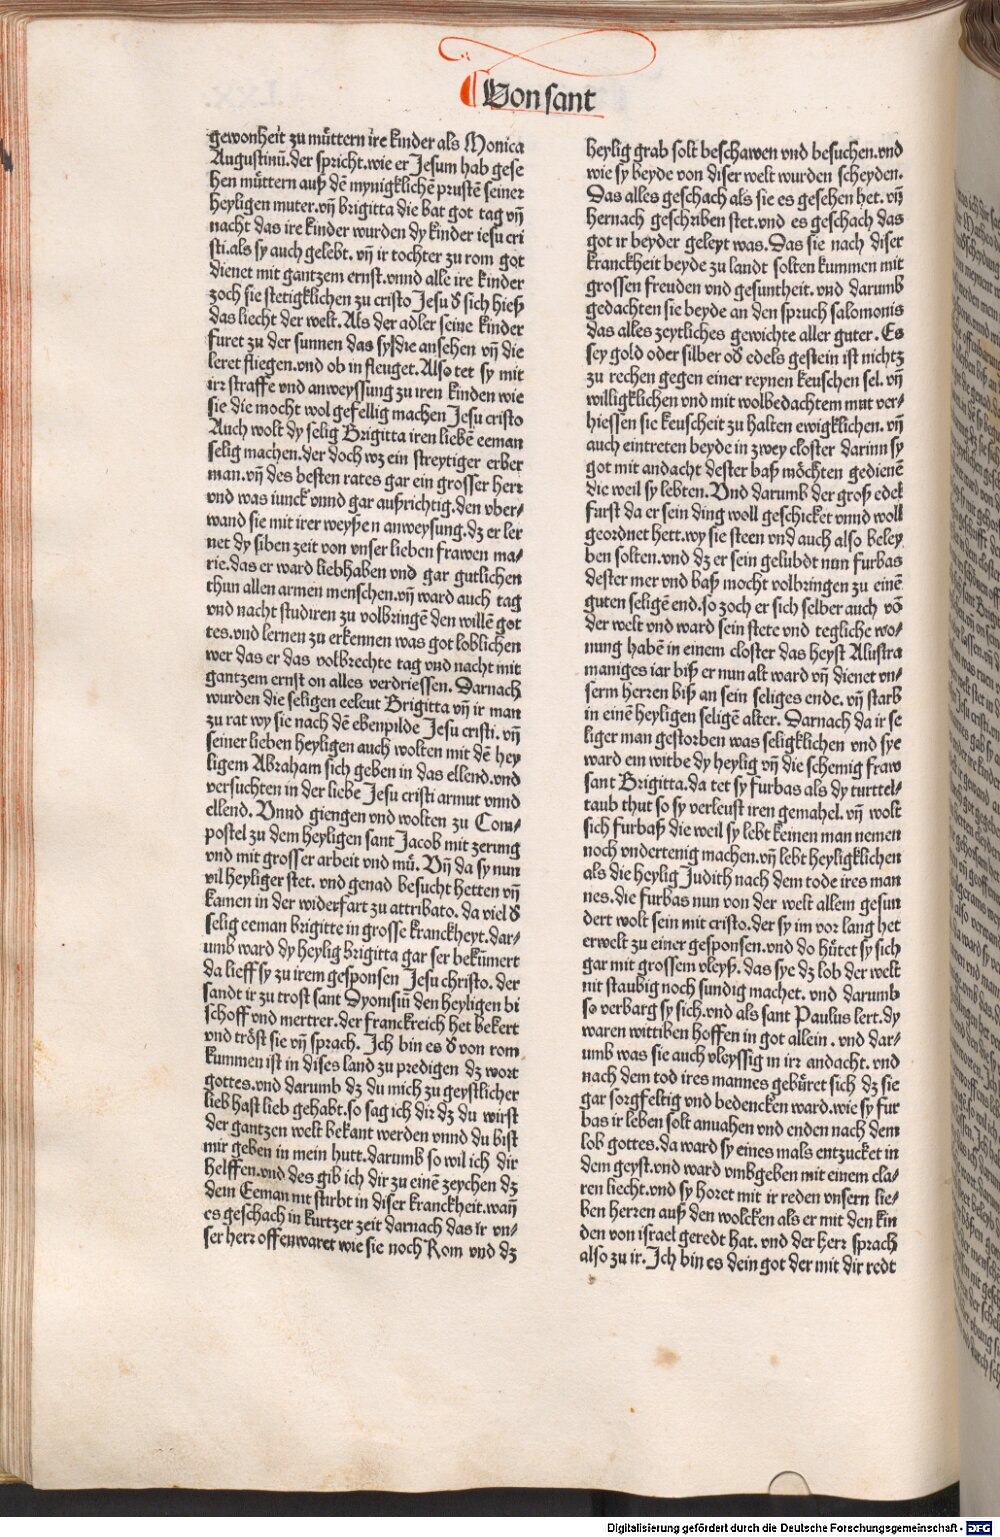 Von sant
gewonheit zu müttern ire kinder als Monica
Augustinū. der spricht. wie er Jesum hab gese
hen müttern auß dē mynigklichē prustē seiner
heyligen muter. vñ brigitta die bat got tag vñ
nacht das ire kinder wurden dy kinder iesu cri
sti. als sy auch gelebt. vñ ir tochter zu rom got
dienet mit gantzem ernst. vnnd alle ire kinder
zoch sie stetigklichen zu cristo Jesu d' sich hieß
das liecht der welt. Als der adler seine kinder
furet zu der sunnen das sy die ansehen vñ die
leret fliegen. vnd ob in fleuget. Also tet sy mit
irr straffe vnd anweyssung zu iren kinden wie
sie die mocht wol gefellig machen Jesu cristo
Auch wolt dy selig Brigitta iren liebē eeman
selig machen. der doch wz ein streytiger erber
man. vñ des besten rates gar ein grosser herr
vnd was iunck vnnd gar aufrichtig. den vber-
wand sie mit irer weysen anweysung. dz er ler
net dy siben zeit von vnser lieben frawen ma-
rie. das er ward liebhaben vnd gar gutlichen
thun allen armen menschen. vñ ward auch tag
vnd nacht studiren zu volbringē den willē got
tes. vnd lernen zu erkennen was got loblichen
wer das er das volbrechte tag vnd nacht mit
gantzem ernst on alles verdriessen. Darnach
wurden die seligen eeleut Brigitta vñ ir man
zu rat wy sie nach dē ebenpilde Jesu cristi. vñ
seiner lieben heyligen auch wolten mit dē hey
ligem Abraham sich geben in das ellend. vnd
versuchten in der liebe Jesu cristi armut vnnd
ellend. Vnnd giengen vnd wolten zu Com-
postel zu dem heyligen sant Jacob mit zerung
vnd mit grosser arbeit vnd mü. Vñ da sy nun
vil heyliger stet. vnd genad besucht hetten vñ
kamen in der widerfart zu attribato. da viel d'
selig eeman brigitte in grosse kranckheyt. dar-
umb ward dy heylig brigitta gar ser bekümert
da lieff sy zu irem gesponsen Jesu christo. der
sandt ir zu trost sant Dyonisiū den heyligen bi
schoff vnd mertrer. der franckreich het bekert
vnd tröst sie vñ sprach. Ich bin es d' von rom
kummen ist in dises land zu predigen dz wort
gottes. vnd darumb dz du mich zu geystlicher
lieb hast lieb gehabt. so sag ich dir dz du wirst
der gantzen welt bekant werden vnnd du bist
mir geben in mein hutt. darumb so wil ich dir
helffen. vnd des gib ich dir zu einē zeychen dz
dein Eeman nit stirbt in diser kranckheit. wañ
es geschach in kurtzer zeit darnach das ir vn-
ser herr offenwaret wie sie noch Rom vnd dz
heylig grab solt beschawen vnd besuchen. vnd
wie sy beyde von diser welt wurden scheyden.
Das alles geschach als sie es gesehen het. vñ
hernach geschriben stet. vnd es geschach das
got ir beyder geleyt was. Das sie nach diser
kranckheit beyde zu landt solten kummen mit
grossen freuden vnd gesuntheit. vnd darumb
gedachten sie beyde an den spruch salomonis
das alles zeytliches gewichte aller guter. Es
sey gold oder silber od' edels gestein ist nichtz
zu rechen gegen einer reynen keuschen sel. vñ
willigklichen vnd mit wolbedachtem mut ver-
hiessen sie keuscheit zu halten ewigklichen. vñ
auch eintreten beyde in zwey closter darinn sy
got mit andacht dester baß möchten gedienē
die weil sy lebten. Vnd darumb der groß edel
furst da er sein ding woll geschicket vnnd woll
geordnet hett. wy sie steen vnd auch also beley
ben solten. vnd dz er sein gelubdt nun furbas
dester mer vnd baß mocht volbringen zu einē
guten seligē end. so zoch er sich selber auch vō
der welt vnd ward sein stete vnd tegliche wo-
nung habē in einem closter das heyst Alustra
maniges iar biß er nun alt ward vñ dienet vn-
serm herren biß an sein seliges ende. vñ starb
in einē heyligen seligē alter. Darnach da ir se
liger man gestorben was seligklichen vnd sye
ward ein witbe dy heylig vñ die schemig fraw
sant Brigitta. da tet sy furbas als dy turttel-
taub thut so sy verleust iren gemahel. vñ wolt
sich furbaß die weil sy lebt keinen man nemen
noch vndertenig machen. vñ lebt heyligklichen
als die heylig Judith nach dem tode ires man
nes. die furbas nun von der welt allein gesun
dert wolt sein mit cristo. der sy im vor lang het
erwelt zu einer gesponsen. vnd do hütet sy sich
gar mit grossem vleyß. das sye dz lob der welt
nit staubig noch sundig machet. vnd darumb
so verbarg sy sich. vnd als sant Paulus lert. dy
waren wittiben hoffen in got allein. vnd dar-
umb was sie auch vleyssig in irr andacht. vnd
nach dem tod ires mannes gebüret sich dz sie
gar sorgfeltig vnd bedencken ward. wie sy fur
bas ir leben solt anuahen vnd enden nach dem
lob gottes. da ward sy eines mals entzucket in
dem geyst. vnd ward vmbgeben mit einem cla-
ren liecht. vnd sy horet mit ir reden vnsern lie-
ben herren auß den wolcken als er mit den kin
den von israel geredt hat. vnd der herr sprach
also zu ir. Ich bin es dein got der mit dir redt
Digitalisierung gefördert durch die Deutsche Forschungsgemeinschaft - DFG